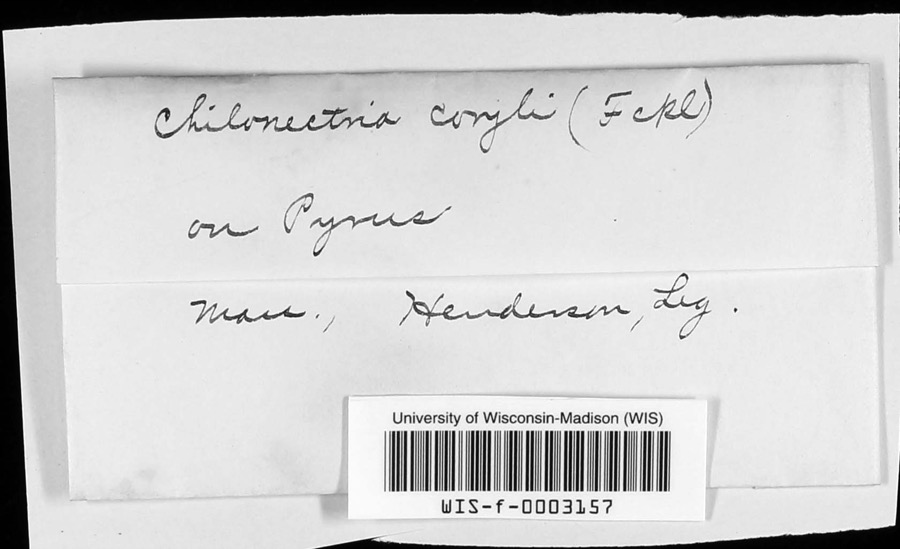 Chilonectria coryli (Fckl)
on Pyrus
Mass., Henderson, Leg.
University of Wisconsin-Madison (WIS)
WIS-f-0003157